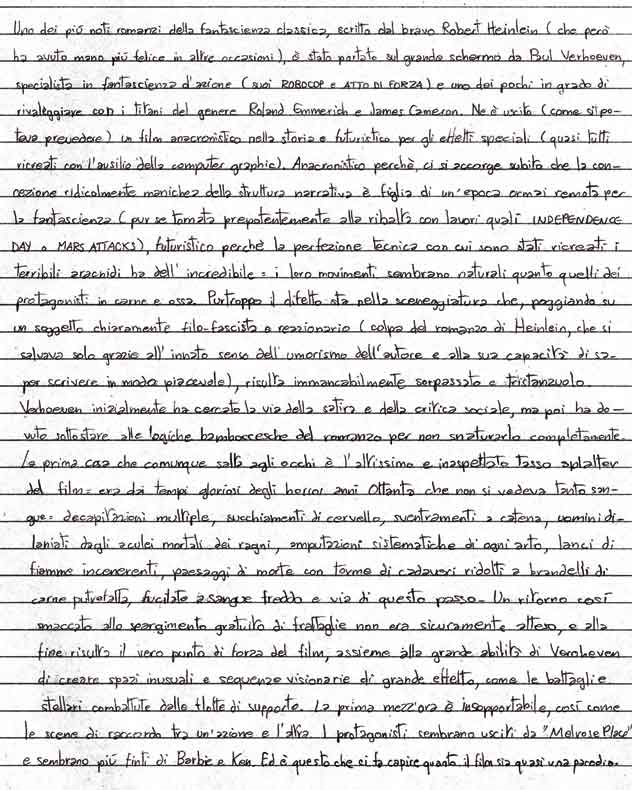 Uno dei più noti romanzi della fantascienza classica, scritto dal bravo Robert Heinlein (che però
ha avuto mano più felice in altre occasioni), è stato portato sul grande schermo da Paul Verhoeven,
specialista in fantascienza d'azione (suoi ROBOCOP e ATTO DI FORZA) e uno dei pochi in grado di
rivaleggiare con i titani del genere Roland Emmerich e James Cameron. Ne è uscito (come si po-
teva prevedere) un film anacronistico nella storia e futuristico per gli effetti speciali (quasi tutti
ricreati con l'ausilio della computer graphic). Anacronistico perchè, ci si accorge subito che la con-
cezione ridicolmente manichea della struttura narrativa è figlia di un'epoca ormai remota per
la fantascienza (pur se tornata prepotentemente alla ribalta con lavori quali INDEPENDENCE
DAY o MARS ATTACKS), futuristico perchè la perfezione tecnica con cui sono stati ricreati i
terribili aracnidi ha dell'incredibile: i loro movimenti sembrano naturali quanto quelli dei
protagonisti in carne e ossa. Purtroppo il difetto sta nella sceneggiatura che, poggiando su
un soggetto chiaramente filo-fascista e reazionario (colpa del romanzo di Heinlein, che si
salvava solo grazie all'innato senso dell'umorismo dell'autore e alla sua capacità di sa-
per scrivere in modo piacevole), risulta immancabilmente sorpassato e tristanzuolo.
Verhoeven inizialmente ha cercato la via della satira e della critica sociale, ma poi ha do-
vuto sottostare alle logiche bamboccesche del romanzo per non snaturarlo completamente.
La prima cosa che comunque salta agli occhi è l'altissimo e inaspettato tasso splatter
del film: era dai tempi gloriosi degli horror anni Ottanta che non si vedeva tanto san-
gue: decapitazioni multiple, succhiamenti di cervello, sventramenti a catena, uomini di-
laniati dagli aculei mortali dei ragni, amputazioni sistematiche di ogni arto, lanci di
fiamme incenerenti, paesaggi di morte con torme di cadaveri ridotti a brandelli di
carne putrefatta, fucilate a sangue freddo e via di questo passo. Un ritorno così
smaccato allo spargimento gratuito di frattaglie non era sicuramente atteso, e alla
fine risulta il vero punto di forza del film, assieme alla grande abilità di Veroheven
di creare spazi inusuali e sequenze visionarie di grande effetto, come le battaglie
stellari combattute dalle flotte di supporto. La prima mezz'ora è insopportabile, così come
le scene di raccordo tra un'azione e l'altra. I protagonisti sembrano usciti da "Melrose Place"
e sembrano più finti di Barbie e Ken. Ed è questo che ci fa capire quanto il film sia quasi una parodia.